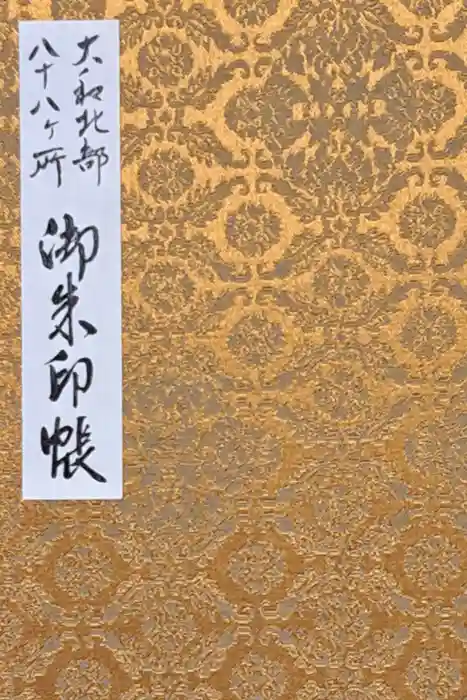 大和北部
八十八ヶ所
御朱印帳